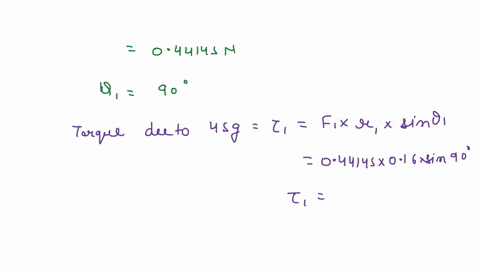 = 0.44145 N
θ₁ = 90°
Torque due to 45g = τ₁ = F₁ × r₁ × sinθ₁
= 0.44145 × 0.16 × sin 90°
τ₁ =